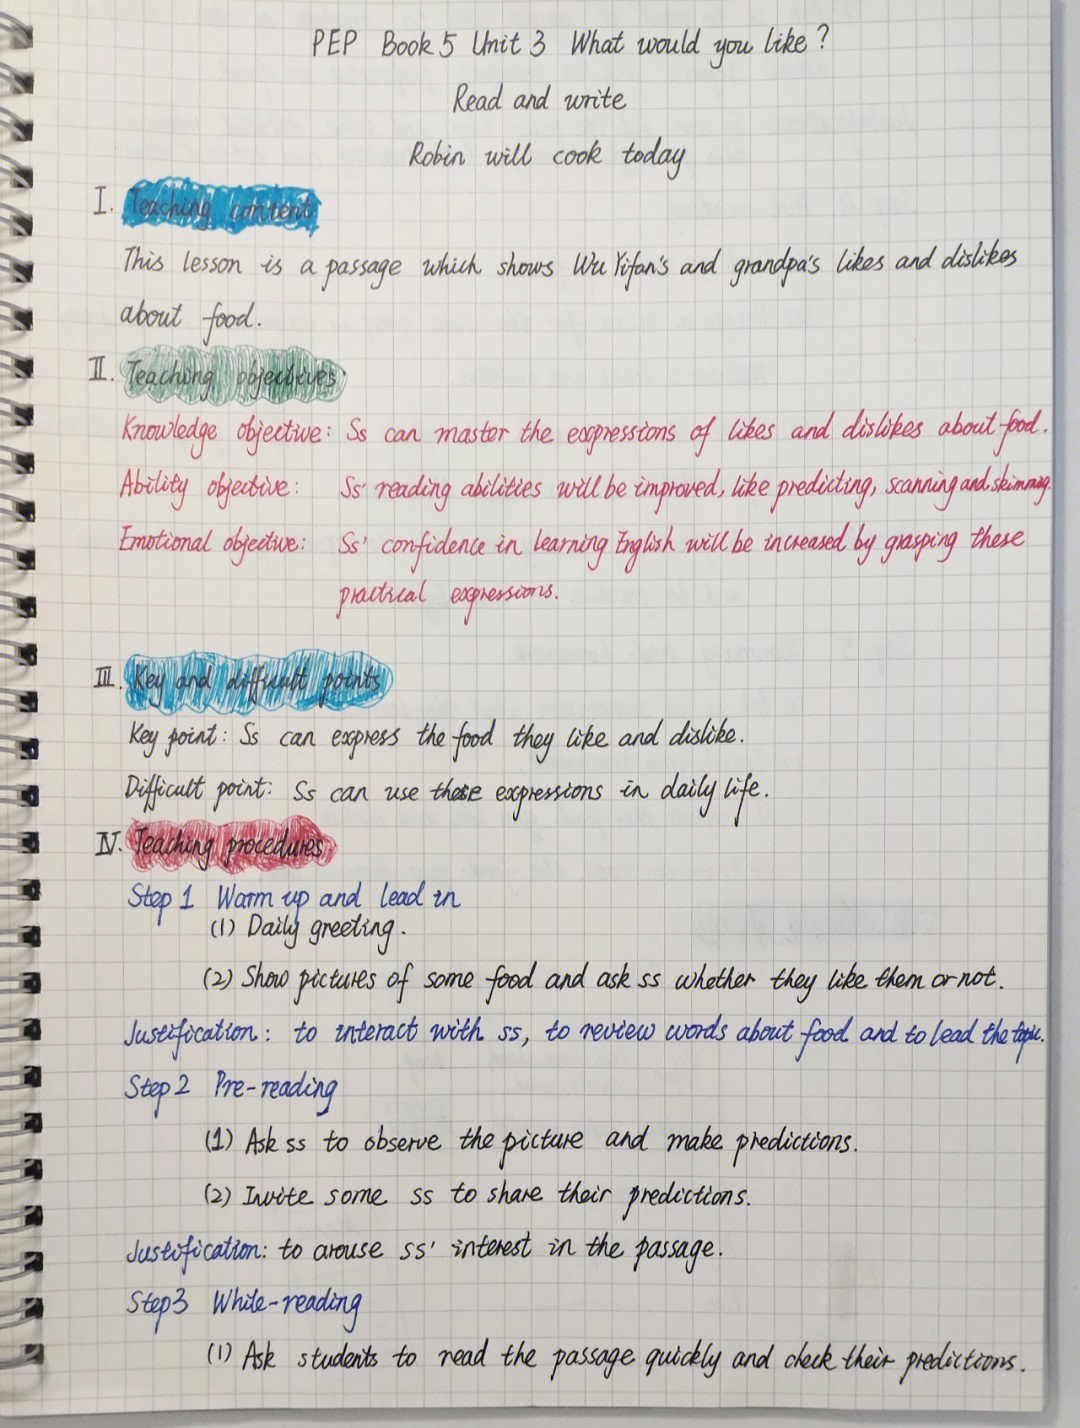 PEP Book 5 Unit 3 What would you like?
Read and write
Robin will cook today
I. Teaching content
This lesson is a passage which shows Wu Yifan's and grandpa's likes and dislikes
about food.
II. Teaching objectives
Knowledge objective: Ss can master the expressions of likes and dislikes about food.
Ability objective: Ss' reading abilities will be improved, like predicting, scanning and skimming.
Emotional objective: Ss' confidence in learning English will be increased by grasping these
practical expressions.
III. Key and difficult points
Key point: Ss can express the food they like and dislike.
Difficult point: Ss can use these expressions in daily life.
IV. Teaching procedures
Step 1 Warm up and lead in
(1) Daily greeting.
(2) Show pictures of some food and ask ss whether they like them or not.
Justification: to interact with ss, to review words about food and to lead the topic.
Step 2 Pre-reading
(1) Ask ss to observe the picture and make predictions.
(2) Invite some ss to share their predictions.
Justification: to arouse ss' interest in the passage.
Step3 While-reading
(1) Ask students to read the passage quickly and check their predictions.